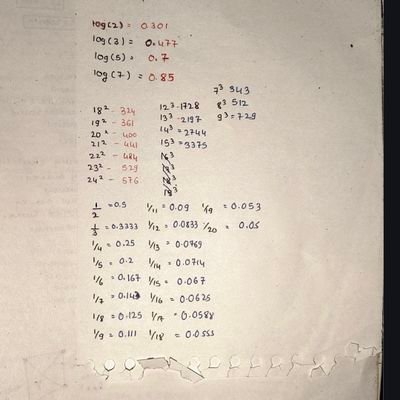 log(2) = 0.301
log(3) = 0.477
log(5) = 0.7
log(7) = 0.85
7³ 343
8³ 512
9³ = 729
18² - 324
19² - 361
20² - 400
21² - 441
22² - 484
23² - 529
24² - 576
12³ - 1728
13³ - 2197
14³ = 2744
15³ = 3375
1/2 = 0.5
1/3 = 0.3333
1/4 = 0.25
1/5 = 0.2
1/6 = 0.167
1/7 = 0.143
1/8 = 0.125
1/9 = 0.111
1/11 = 0.09
1/12 = 0.0833
1/13 = 0.0769
1/14 = 0.0714
1/15 = 0.067
1/16 = 0.0625
1/17 = 0.0588
1/18 = 0.0555
1/19 = 0.053
1/20 = 0.05